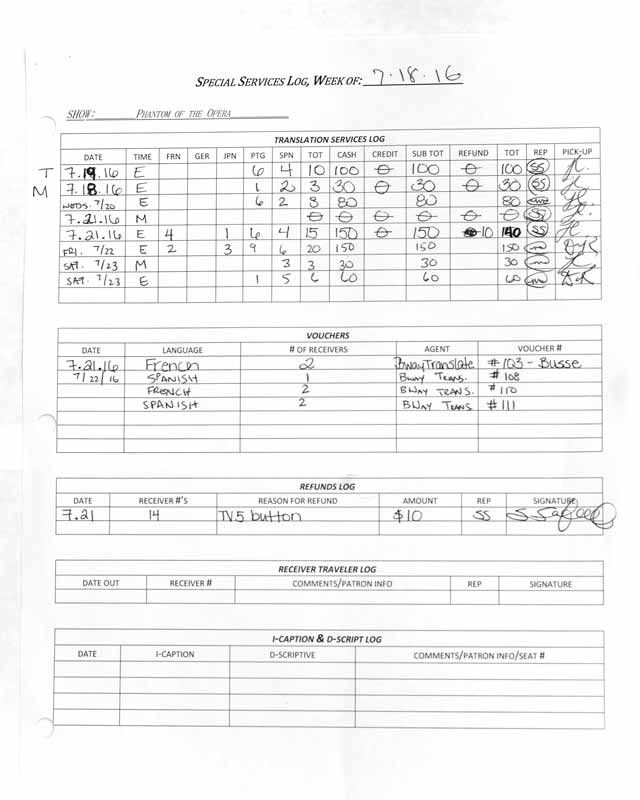 SPECIAL SERVICES LOG, WEEK OF: 7.18.16
SHOW: PHANTOM OF THE OPERA
TRANSLATION SERVICES LOG
DATE TIME FRN GER JPN PTG SPN TOT CASH CREDIT SUB TOT REFUND TOT REP PICK-UP
T 7.19.16 E 6 4 10 100 0 100 0 100 SS
M 7.18.16 E 1 2 3 30 0 30 0 30 SS
WEDS. 7/20 E 6 2 8 80 80 80
7.21.16 M 0 0 0 0 0 0 SS
7.21.16 E 4 1 6 4 15 150 0 150 10 140 SS
FRI. 7/22 E 2 3 9 6 20 150 150 150 DJR
SAT. 7/23 M 3 3 30 30 30
SAT. 7/23 E 1 5 6 60 60 60
VOUCHERS
DATE LANGUAGE # OF RECEIVERS AGENT VOUCHER #
7.21.16 French 2 BwayTranslate #103 - Busse
7/22/16 SPANISH 1 BWAY TRANS. #108
FRENCH 2 BWAY TRANS. #110
SPANISH 2 BWAY TRANS #111
REFUNDS LOG
DATE RECEIVER #'S REASON FOR REFUND AMOUNT REP SIGNATURE
7.21 14 TV5 button $10 SS
RECEIVER TRAVELER LOG
DATE OUT RECEIVER # COMMENTS/PATRON INFO REP SIGNATURE
I-CAPTION & D-SCRIPT LOG
DATE I-CAPTION D-SCRIPTIVE COMMENTS/PATRON INFO/SEAT #